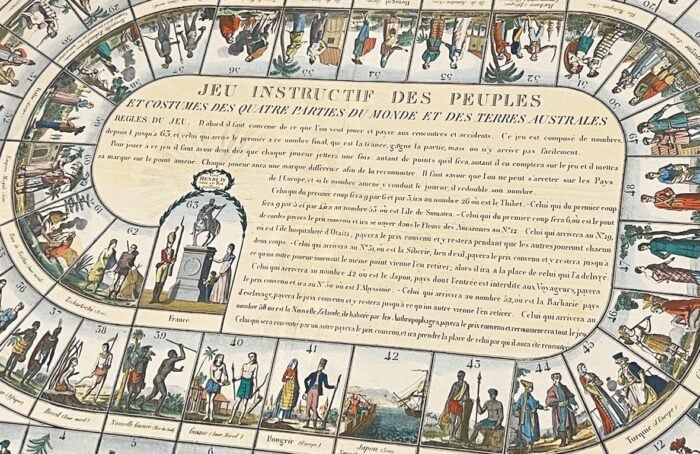 JEU INSTRUCTIF DES PEUPLES
ET COSTUMES DES QUATRE PARTIES DU MONDE ET DES TERRES AUSTRALES
REGLES DU JEU. D'abord il faut convenir de ce que l'on veut jouer et payer aux rencontres et accidents. Ce jeu est composé de nombres,
depuis 1 jusqu'à 63, et celui qui arrive le premier a ce nombre final, qui est la france, gagne la partie, mais on n'y arrive pas facilement.
Pour jouer a ce jeu il faut avoir deux dez que chaque joueur jettera une fois, autant de points qu'il fera, autant il en comptera sur le jeu et il mettra
sa marque sur le point amené. Chaque joueur aura une marque différente afin de la reconnoitre. Il faut savoir que l'on ne peut s'arreter sur les Pays
de l'Europe, et si le nombre amené y conduit le joueur, il redouble son nombre.
Celui qui du premier coup fera 9 par 6 et par 3 ira au nombre 26 ou est le Thibet. - Celui qui du premier coup
fera 9 par 5 et par 4 ira au nombre 53 ou est l'île de Sumatra. - Celui qui du premier coup fera 6, où est le pont
de cordes payera le prix convenu et ira se noyer dans le Fleuve des Amazones au N.º 12. Celui qui arrivera au N.º 19,
ou est l'île hospitalière d'Otaïti, payera le prix convenu et y restera pendant que les autres joueront chacun
deux coups. - Celui qui arrivera au N.º 31, ou est la Siberie, lieu d'exil, payera le prix convenu et y restera jusqu'à
ce qu'un autre joueur amenant le même point vienne l'en retirer; alors il ira à la place de celui qui l'a delivré
Celui qui arrivera au nombre 42 ou est le Japon, pays dont l'entrée est interdite aux Voyageurs, payera
le prix convenu et ira au N.º 30 où est l'Abyssinie. - Celui qui arrivera au nombre 52, ou est la Barbarie pays
d'esclavage, payera le prix convenu et y restera jusqu'à ce qu'un autre vienne l'en retirer. Celui qui arrivera au
nombre 58 ou est la Nouvelle Zelande, habitée par les Anthropophages, payera le prix convenu, et recommencera tout le jeu
Celui qui sera rencontré par un autre payera le prix convenu, et ira prendre la place de celui par qui il aura été rencontré.
HENRI IV
63
France
62
61
60
59
56
55
54
53
52
51
50
49
48
47
46
45
44
43
42
Japon (Asie)
41
Hongrie (Europe)
40
39
Nouvelle Guinée
38
Bresil (Amer. merid.)
37
Turquie (d'Europe)
4
5
6
7
8
9
10
11
12